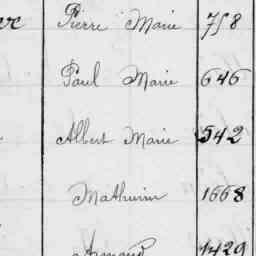 Pierre Marie 758
Paul Marie 646
Albert Marie 542
Mathurin 1668
Armand 1429